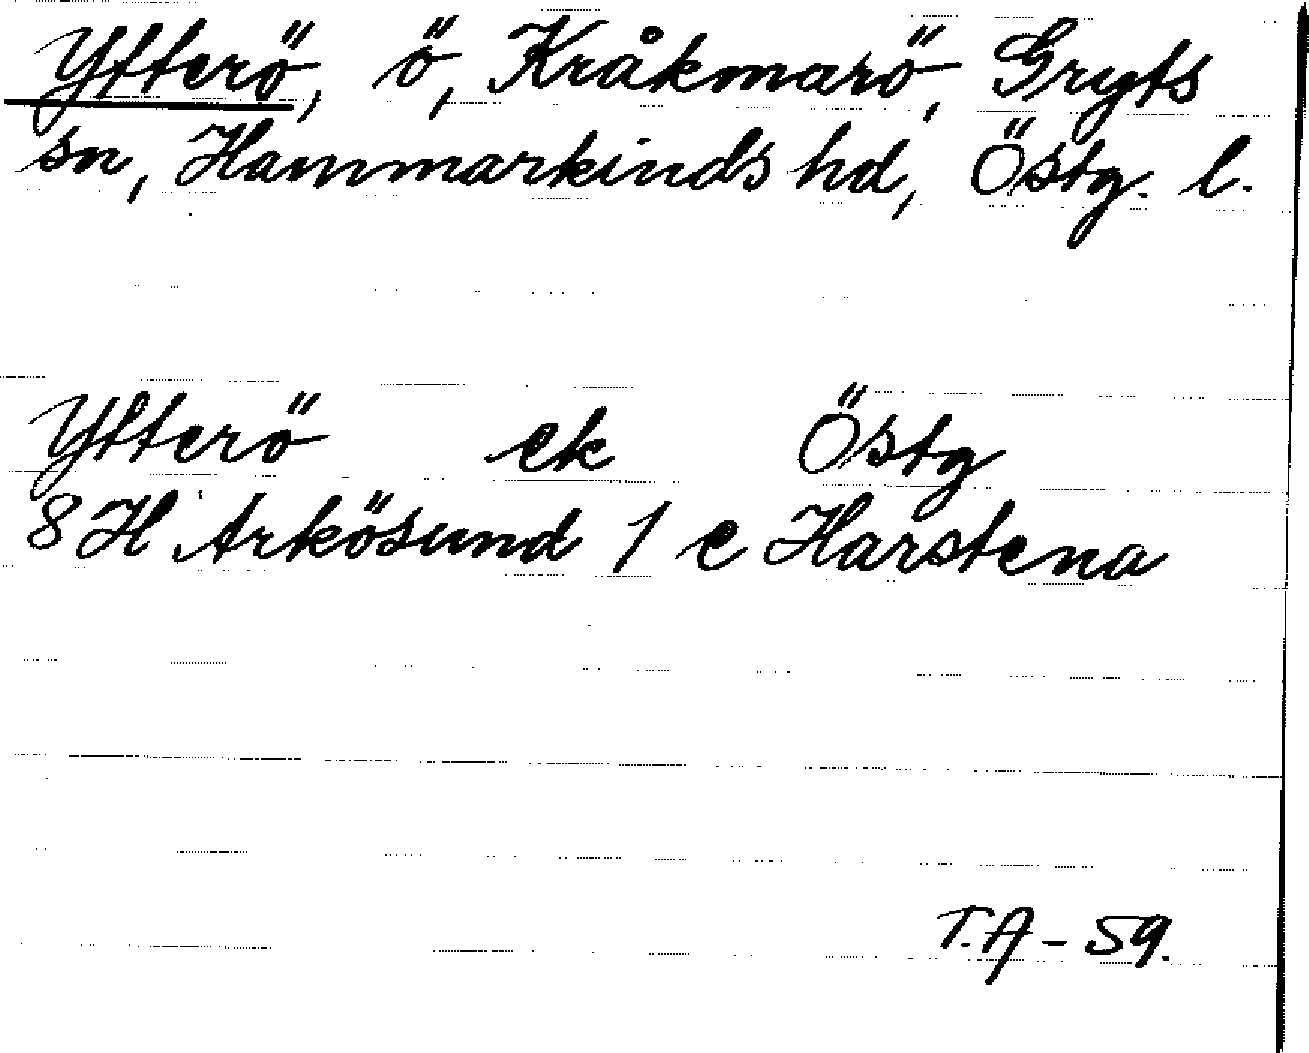 Ytterö, ö, Kråkmarö, Gryts
sn, Hammarkinds hd, Östg. l.
Ytterö ek Östg
8 H Arkösund / e Harstena
T.A - 59.